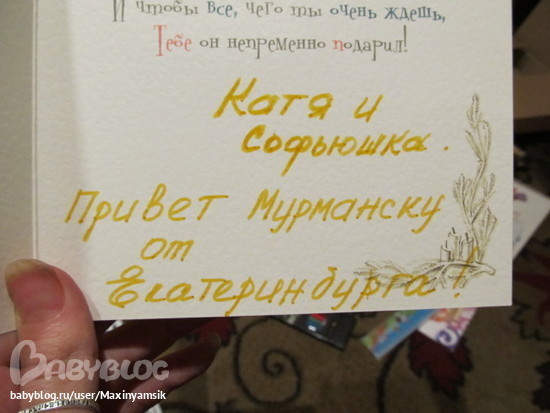 И чтобы все, чего ты очень ждешь,
Тебе он непременно подарил!
Катя и
Софьюшка.
Привет Мурманску
от
Екатеринбурга!
BABYBLOG
babyblog.ru/user/Maxinyamsik